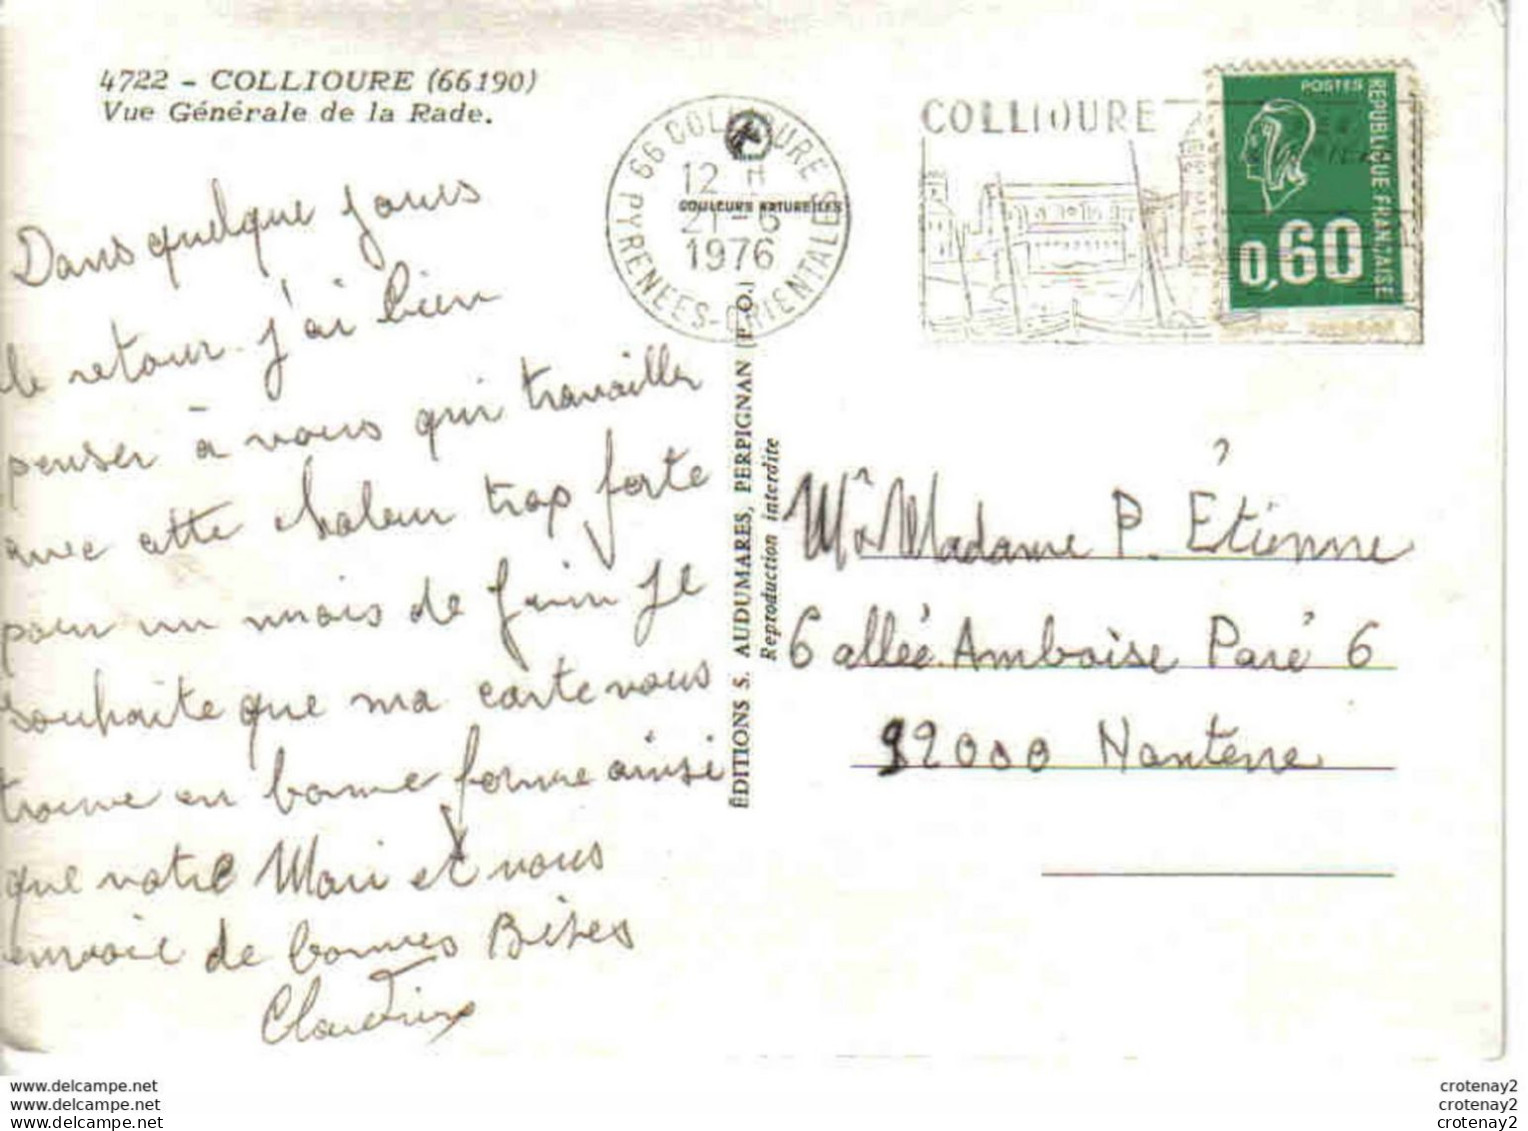 4722 - COLLIOURE (66190)
Vue Générale de la Rade.
Dans quelque jours
le retour. j'ai bien
penser à vous qui travailler
avec cette chaleur trop forte
pour un mois de Juin Je
souhaite que ma carte vous
trouve en bonne forme ainsi
que votre Mari et vous
envoie de bonnes Bises
66 COLLIOURE
PYRENEES-ORIENTALES
12 H
21-6
1976
COULEURS NATURELLES
ÉDITIONS S. AUDUMARES, PERPIGNAN (P.O.)
Reproduction interdite
COLLIOURE
POSTES
REPUBLIQUE FRANÇAISE
0,60
Mr Madame P. Étienne
6 allée Amboise Paré 6
92000 Nanterre
www.delcampe.net
www.delcampe.net
www.delcampe.net
crotenay2
crotenay2
crotenay2